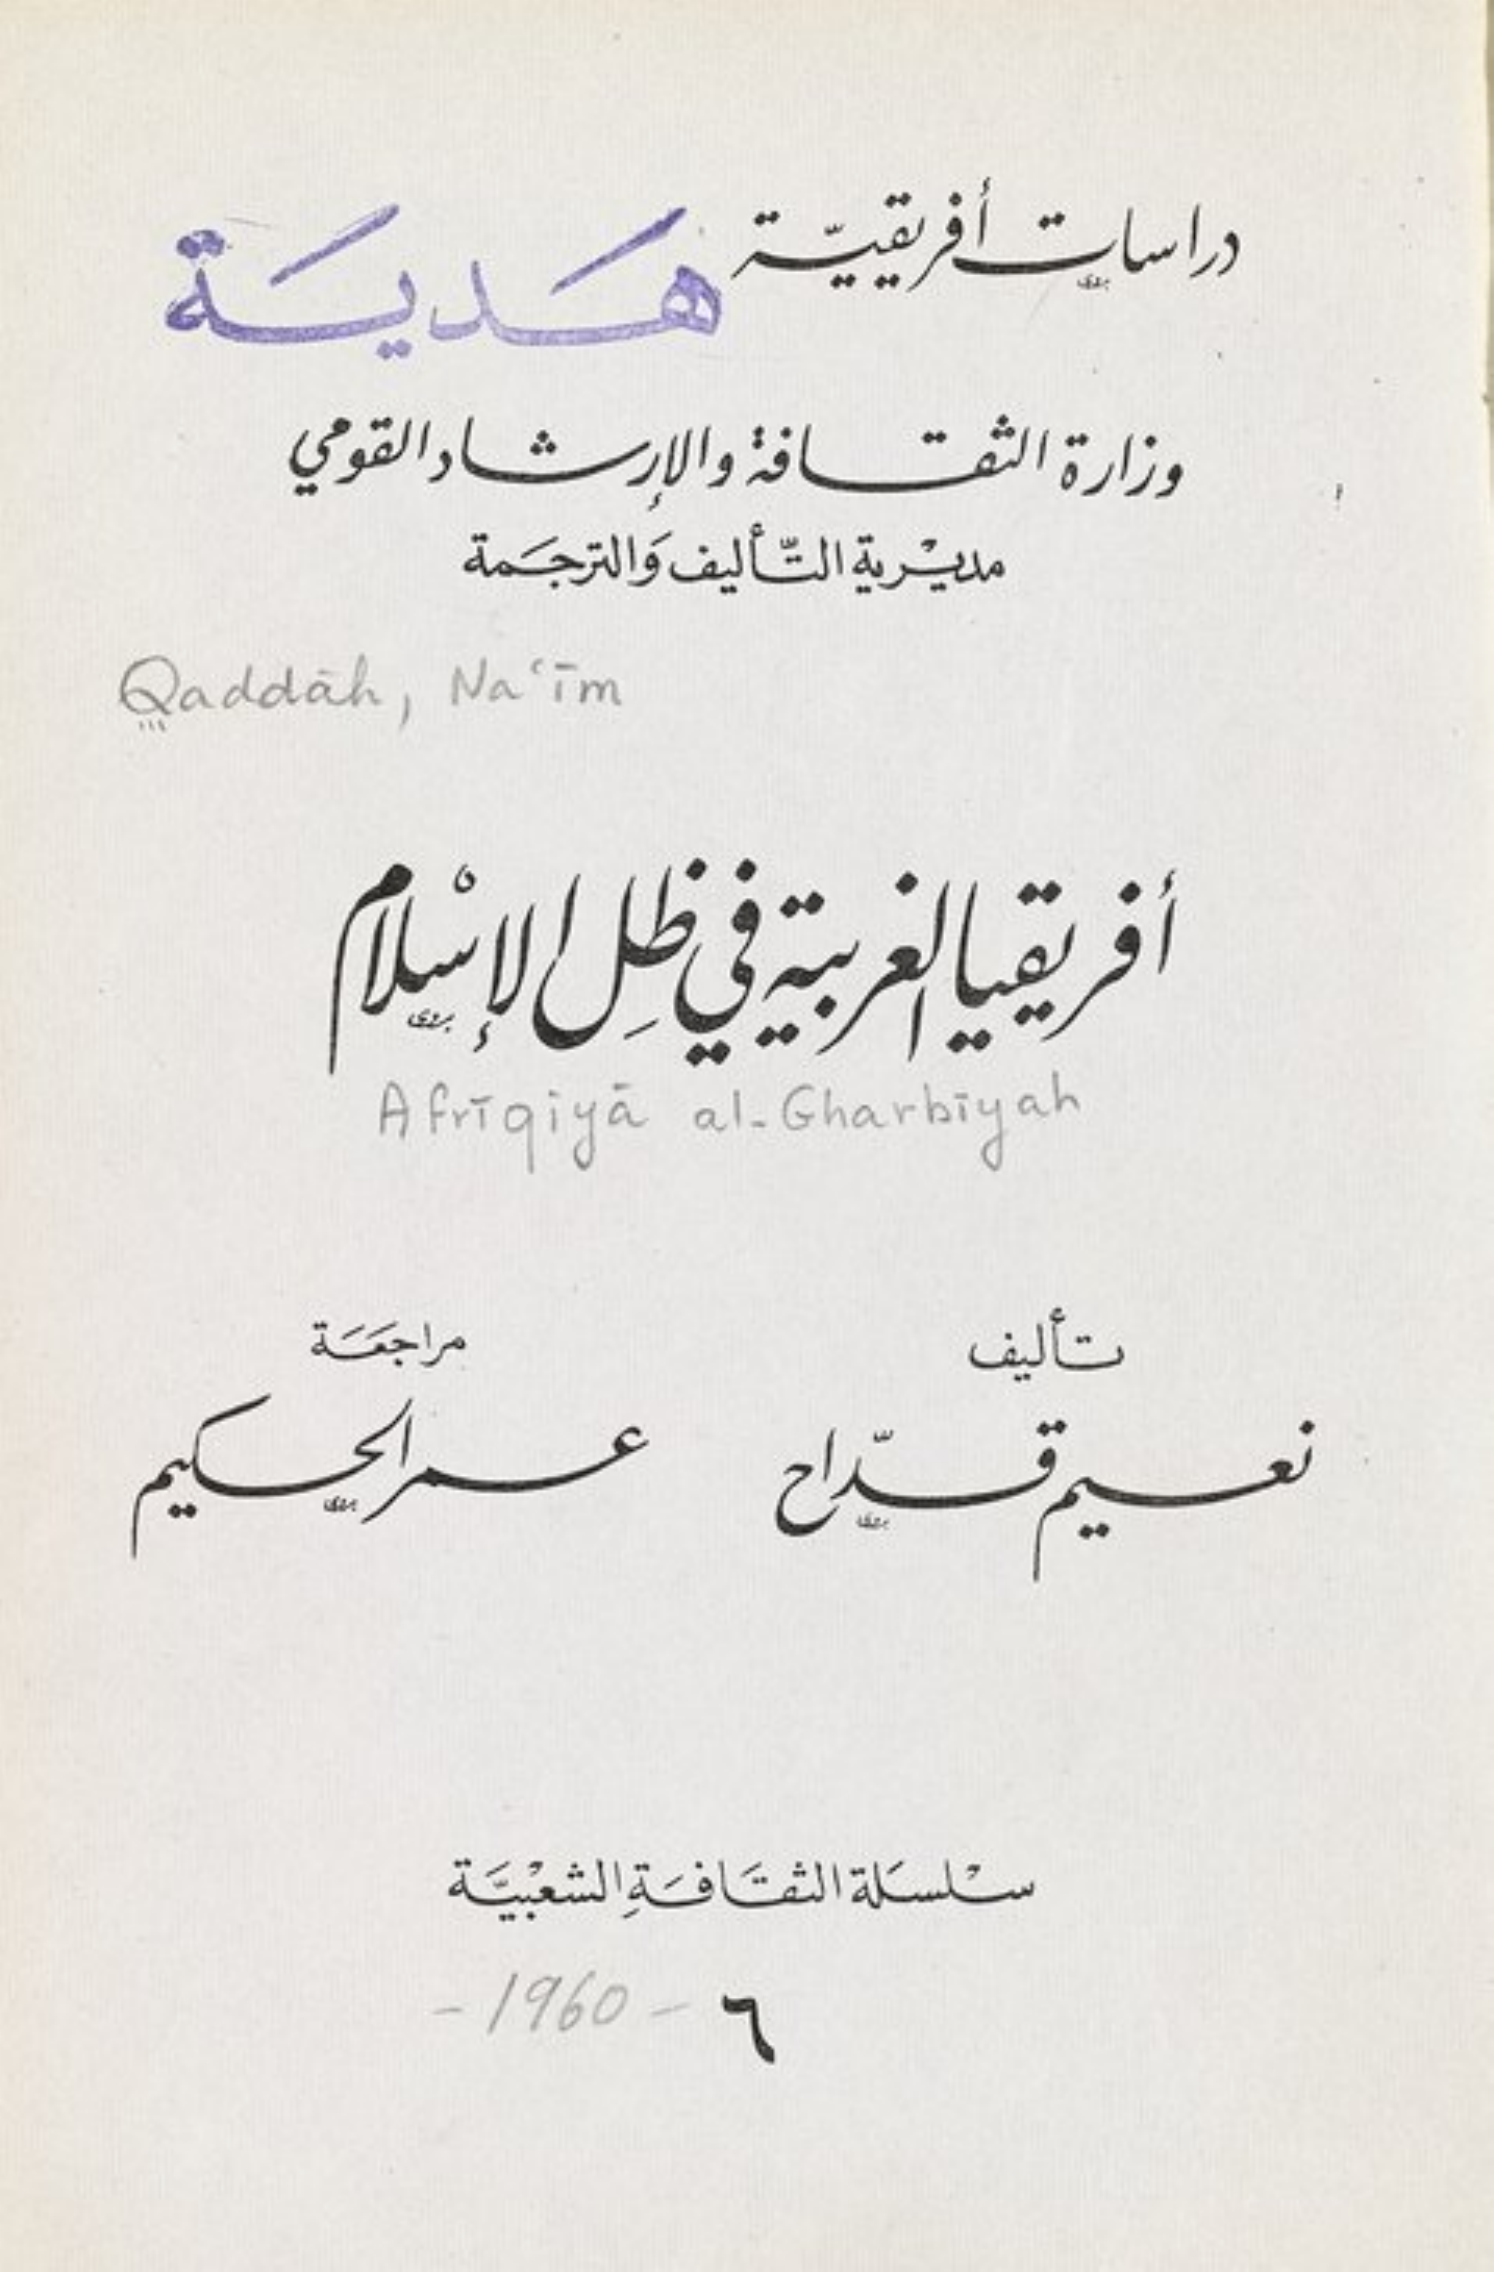 دراسات أفريقيّة
هَديَة
وزارة الثقافة والإرشاد القومي
مديْرية التّأليف وَالترجَمة
Qaddāh, Na‘īm
أفريقيا الغربية في ظِل الإسْلام
Afrīqiyā al-Gharbīyah
تأليف
مراجَعَة
نعيم قدّاح
عمر الحكيم
سلْسَلة الثقَافَةِ الشعْبيَّة
٦
- 1960 -